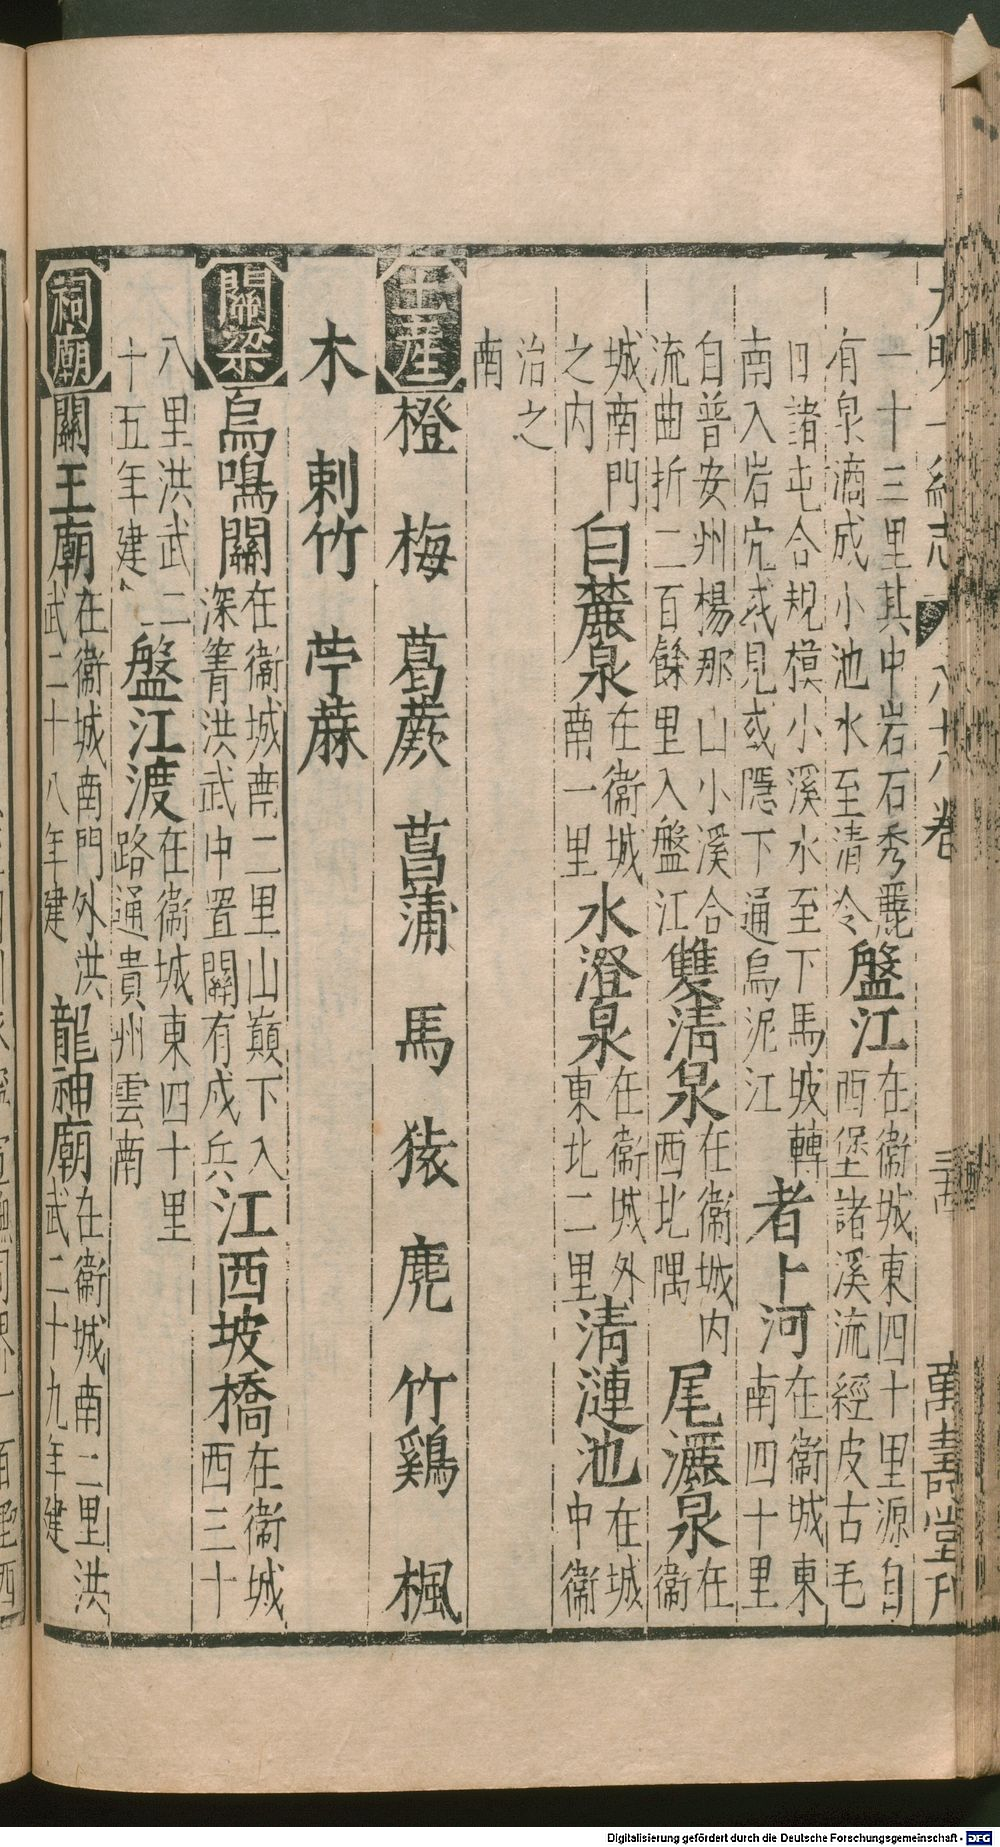 大明一統志 八十八卷 萬壽堂刊
一十三里其中岩石秀麗
有泉滴成小池水至清冷
盤江
在衛城東四十里源自
西堡諸溪流經皮古毛
口諸屯合規模小溪水至下馬坡轉
南入岩穴或見或隱下通烏泥江
者卜河
在衛城東
南四十里
自普安州楊那山小溪合
流曲折二百餘里入盤江
雙清泉
在衛城内
西北隅
尾灑泉
在
衛
城南門
之内
白麓泉
在衛城
南一里
水澄泉
在衛城外
東北二里
清漣池
在城
中衛
治之
南
土產 橙 梅 葛蕨 菖蒲 馬 猿 麂 竹鷄 楓
木 刺竹 苧蔴
關梁 烏鳴關
在衛城南二里山巔下入
深箐洪武中置關有戍兵
江西坡橋
在衛城
西三十
八里洪武二
十五年建
盤江渡
在衛城東四十里
路通貴州雲南
祠廟 關王廟
在衛城南門外洪
武二十八年建
龍神廟
在衛城南二里洪
武二十九年建
Digitalisierung gefördert durch die Deutsche Forschungsgemeinschaft - DFG